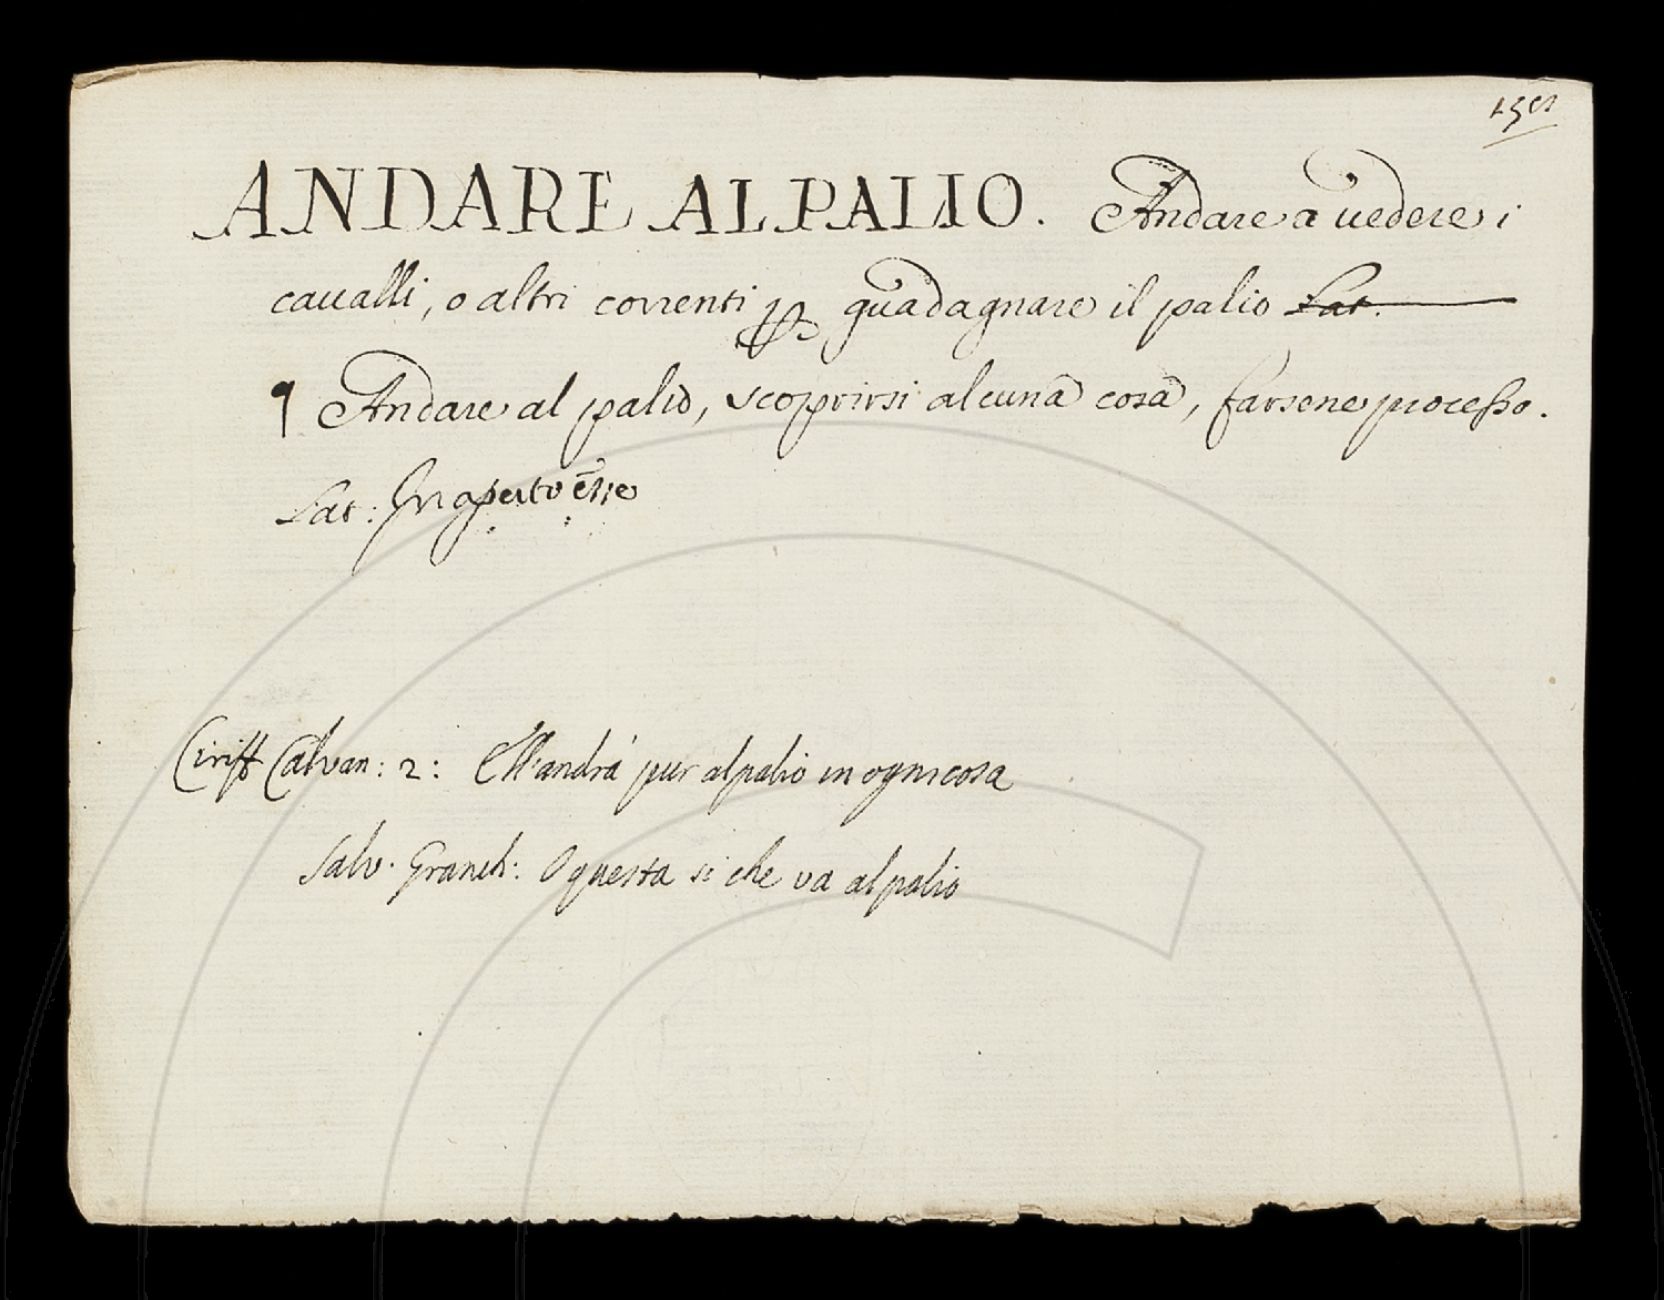 ANDARE AL PALIO. Andare a uedere i
caualli, o altri correnti ꝑ guadagnare il palio Lat.
¶ Andare al palio, scoprirsi alcuna cosa, farsene processo.
Lat: In aperto
Ciriff Calvan: 2: Ell'andrà pur al palio in ogni cosa
Salv. Granch: O questa si che va al palio